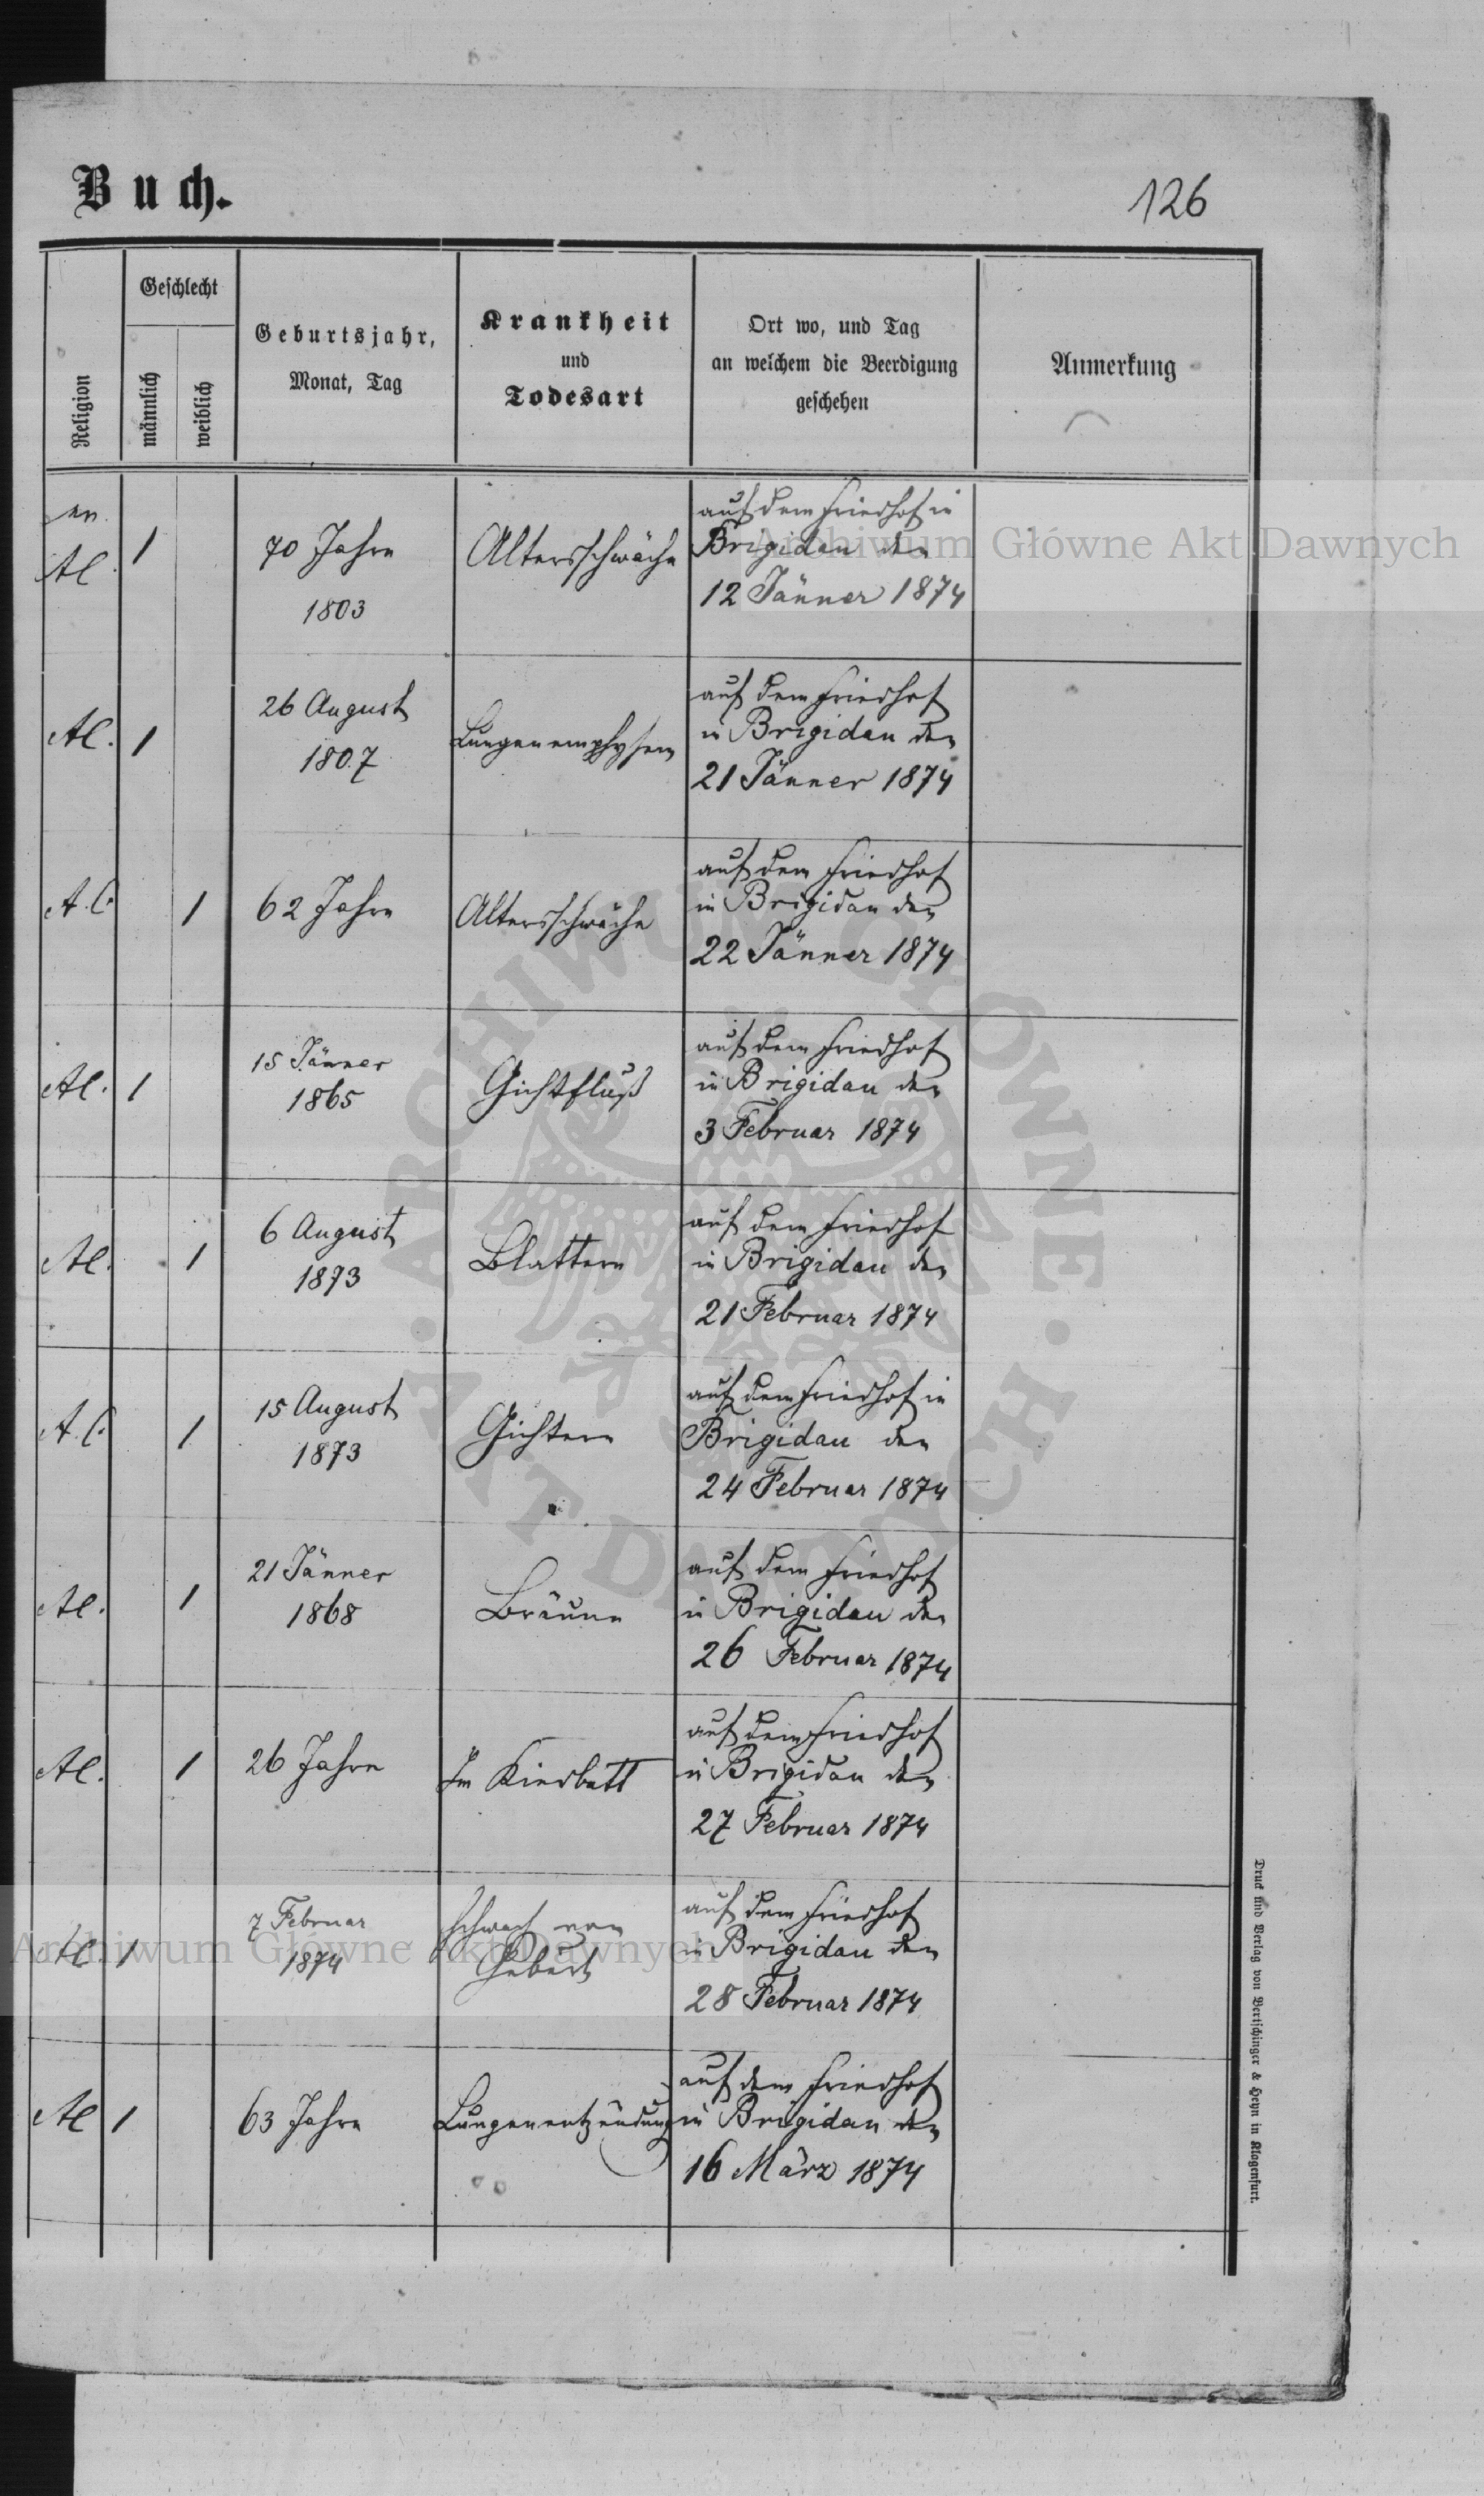 Buch.
126
Religion
Geschlecht
männlich
weiblich
Geburtsjahr,
Monat, Tag
Krankheit
und
Todesart
Ort wo, und Tag
an welchem die Beerdigung
geschehen
Anmerkung
ev.
AC.
1
70 Jahre
1803
Altersschwäche
auf dem Friedhof in
Brigidau den
12 Jänner 1874
AC.
1
26 August
1807
Lungenemphysem
auf dem Friedhof
in Brigidau den
21 Jänner 1874
A.C.
1
62 Jahre
Altersschwäche
auf dem Friedhof
in Brigidau den
22 Jänner 1874
AC.
1
15 Jänner
1865
Gichtfluß
auf dem Friedhof
in Brigidau den
3 Februar 1874
AC.
1
6 August
1873
Blattern
auf dem Friedhof
in Brigidau den
21 Februar 1874
A.C.
1
15 August
1873
Gichtern
auf dem Friedhof in
Brigidau den
24 Februar 1874
AC.
1
21 Jänner
1868
Bräune
auf dem Friedhof
in Brigidau den
26 Februar 1874
AC.
1
26 Jahre
Im Kindbett
auf dem Friedhof
in Brigidau den
27 Februar 1874
AC
1
7 Februar
1874
Schwach von
Geburt
auf dem Friedhof
in Brigidau den
28 Februar 1874
AC
1
63 Jahre
Lungenentzündung
auf dem Friedhof
in Brigidau den
16 März 1874
Druck und Verlag von Bertschinger & Heyn in Klagenfurt.
Archiwum Główne Akt Dawnych
Archiwum Główne Akt Dawnych
ARCHIWUM GŁÓWNE AKT DAWNYCH